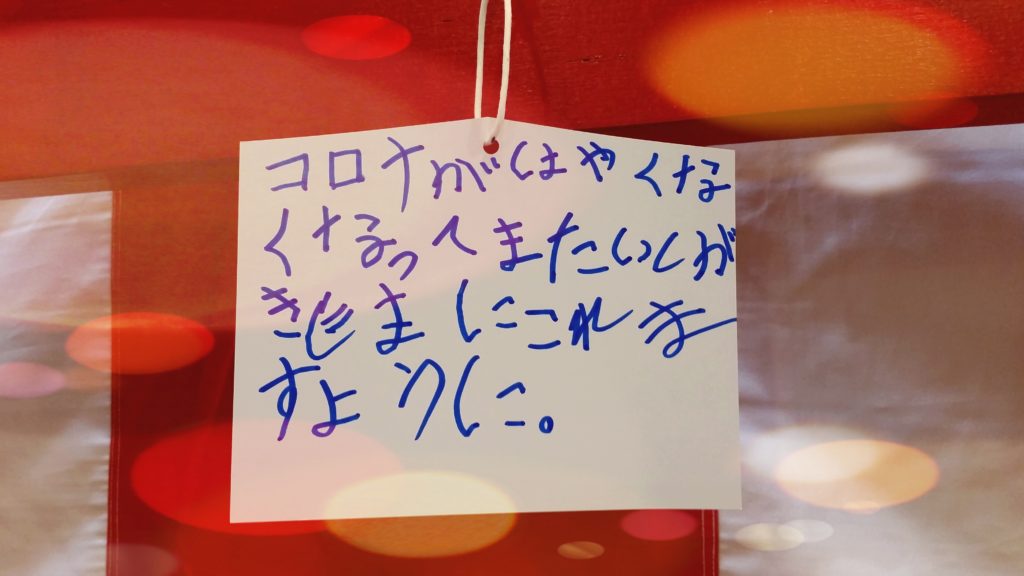 コロナがはやくな
くなってまたいしが
きじまにこれま
すように。